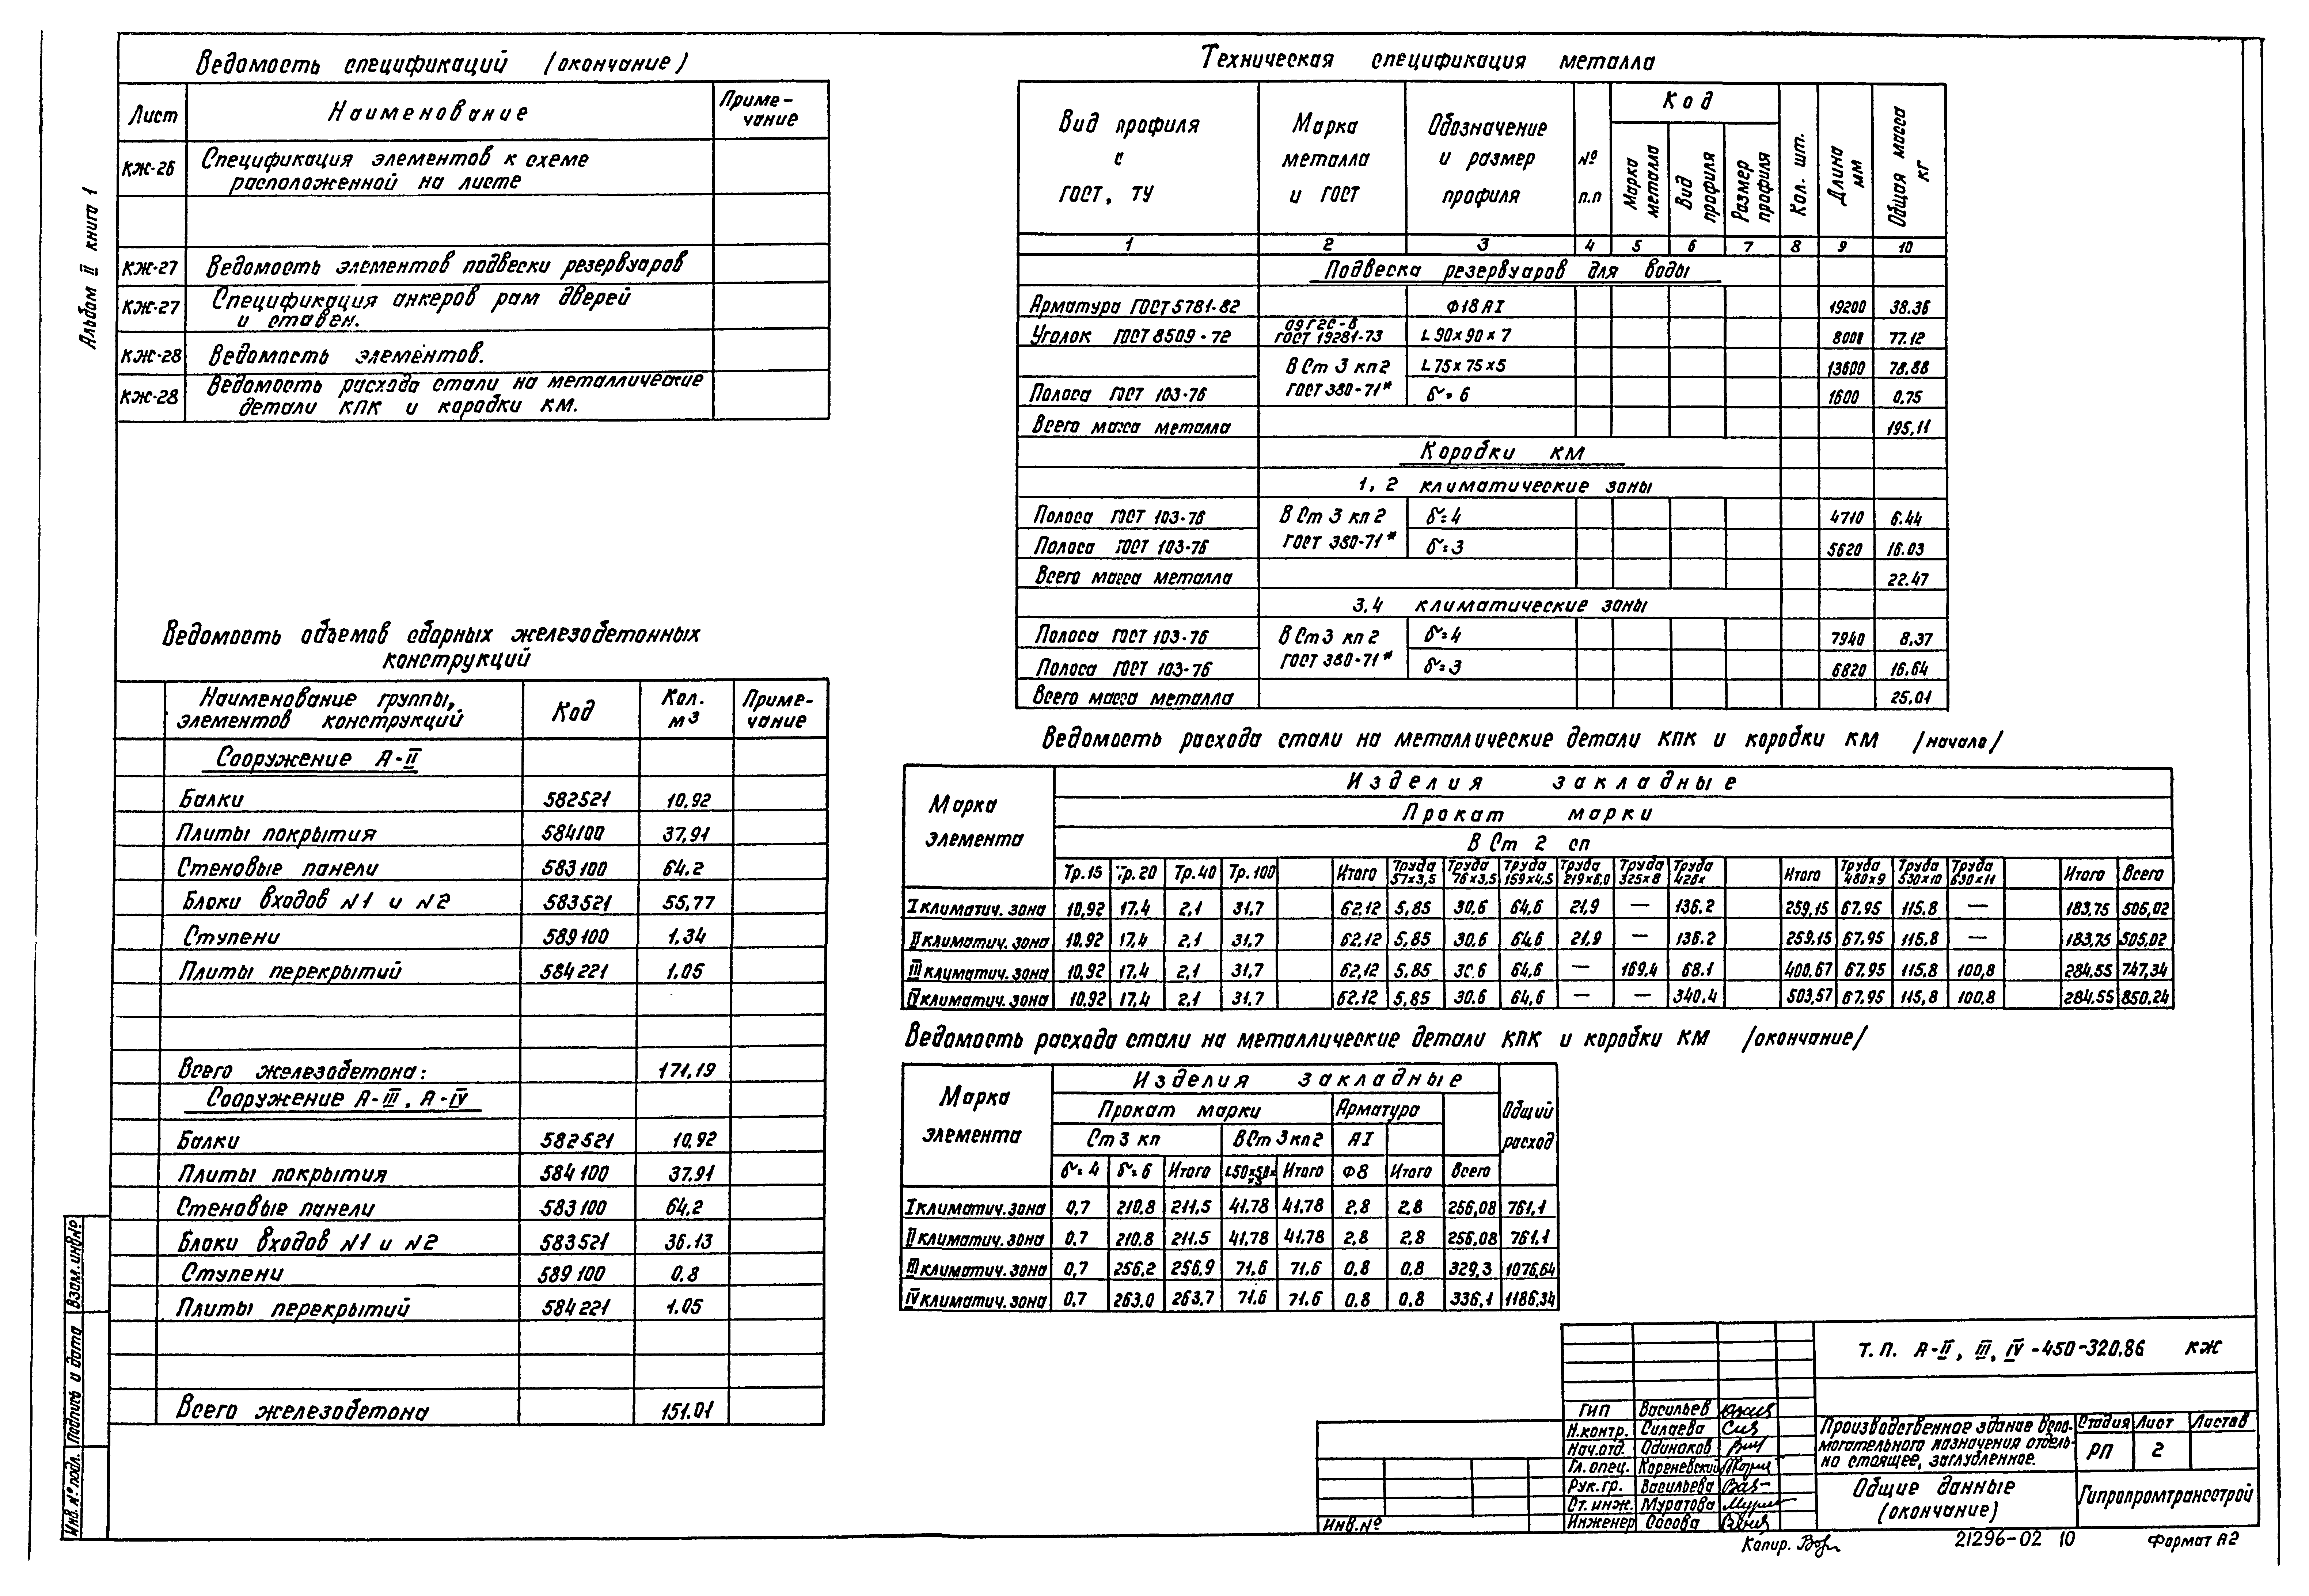 Альбом II книга 1
Ведомость спецификаций (окончание)
Лист Наименование Приме-
чание
КЖ-26 Спецификация элементов к схеме
расположенной на листе
КЖ-27 Ведомость элементов подвески резервуаров
КЖ-27 Спецификация анкеров рам дверей
и ставен.
КЖ-28 Ведомость элементов.
КЖ-28 Ведомость расхода стали на металлические
детали КПК и коробки КМ.
Ведомость объемов сборных железобетонных
конструкций
Наименование группы,
элементов конструкций Код Кол.
м3 Приме-
чание
Сооружение А-II
Балки 582521 10,92
Плиты покрытия 584100 37,91
Стеновые панели 583100 64.2
Блоки входов №1 и №2 583521 55,77
Ступени 589100 1.34
Плиты перекрытий 584221 1.05
Всего железобетона: 171,19
Сооружение А-III, А-IV
Балки 582521 10,92
Плиты покрытия 584100 37.91
Стеновые панели 583100 64,2
Блоки входов №1 и №2 583521 36.13
Ступени 589100 0,8
Плиты перекрытий 584221 1.05
Всего железобетона 151.01
Техническая спецификация металла
Вид профиля
с
ГОСТ, ТУ
Марка
металла
и ГОСТ
Обозначение
и размер
профиля
№
п.п
Код
Марка
металла
Вид
профиля
Размер
профиля
Кол. шт.
Длина
мм
Общая масса
кг
1 2 3 4 5 6 7 8 9 10
Подвеска резервуаров для воды
Арматура ГОСТ 5781-82 Ф18 АI 19200 38.36
Уголок ГОСТ 8509-72 09Г2С-6
ГОСТ 19281-73 L 90×90×7 8000 77.12
В Ст 3 кп2 L 75×75×5 13600 78.88
Полоса ГОСТ 103-76 ГОСТ 380-71* δ=6 1600 0,75
Всего масса металла 195,11
Коробки КМ
1, 2 климатические зоны
Полоса ГОСТ 103-76 В Ст 3 кп 2 δ=4 4710 6.44
Полоса ГОСТ 103-76 ГОСТ 380-71* δ=3 5620 16.03
Всего масса металла 22.47
3.4 климатические зоны
Полоса ГОСТ 103-76 В Ст 3 кп 2 δ=4 7940 8,37
Полоса ГОСТ 103-76 ГОСТ 380-71* δ=3 6820 16.64
Всего масса металла 25.01
Ведомость расхода стали на металлические детали КПК и коробки КМ /начало/
Марка
элемента
Изделия закладные
Прокат марки
В Ст 2 сп
Тр.15 Тр.20 Тр.40 Тр.100 Итого Труба
57×3,5 Труба
76×3,5 Труба
159×4,5 Труба
219×6,0 Труба
325×8 Труба
426× Итого Труба
480×9 Труба
530×10 Труба
630×11 Итого Всего
I климатич. зона 10,92 17.4 2,1 31,7 62,12 5,85 30,6 64,6 21,9 — 136.2 259,15 67.95 115.8 — 183,75 505,02
II климатич. зона 10.92 17,4 2,1 31.7 62,12 5,85 30,6 64,6 21,9 — 136.2 259,15 67,95 115,8 — 183,75 505,02
III климатич. зона 10,92 17.4 2,1 31,7 62,12 5,85 30,6 64,6 — 169.4 68.1 400.67 67,95 115.8 100,8 284,55 747,34
IV климатич. зона 10.92 17,4 2,1 31,7 62.12 5,85 30.6 64,6 — — 340.4 503,57 67,95 115,8 100.8 284,55 850,24
Ведомость расхода стали на металлические детали КПК и коробки КМ /окончание/
Марка
элемента
Изделия закладные
Общий
расход
Прокат марки Арматура
Ст 3 кп ВСт 3 кп 2 АI
δ=4 δ=6 Итого L50×50×5 Итого Ф8 Итого Всего
I климатич. зона 0,7 210,8 211,5 41,78 41.78 2.8 2,8 256,08 761,1
II климатич. зона 0.7 210,8 211.5 41,78 41,78 2,8 2.8 256,08 761.1
III климатич. зона 0,7 256,2 256,9 71,6 71,6 0,8 0,8 329,3 1076,64
IV климатич. зона 0,7 263.0 263,7 71,6 71,6 0.8 0.8 336,1 1186,34
Т.П. А-II, III, IV-450-320.86 КЖ
ГИП Васильев
Н.контр. Силаева
Нач.отд. Одинаков
Гл. спец. Кореневский
Рук.гр. Васильева
Ст. инж. Муратова
Инженер Сосова
Производственное здание вспо-
могательного назначения отдель-
но стоящее, заглубленное.
Стадия Лист Листов
РП 2
Общие данные
(окончание)
Гипропромтрансстрой
Инв.№
Взам. инв.№
Подпись и дата
Инв. № подл.
Копир.
21296-02 10
Формат А2